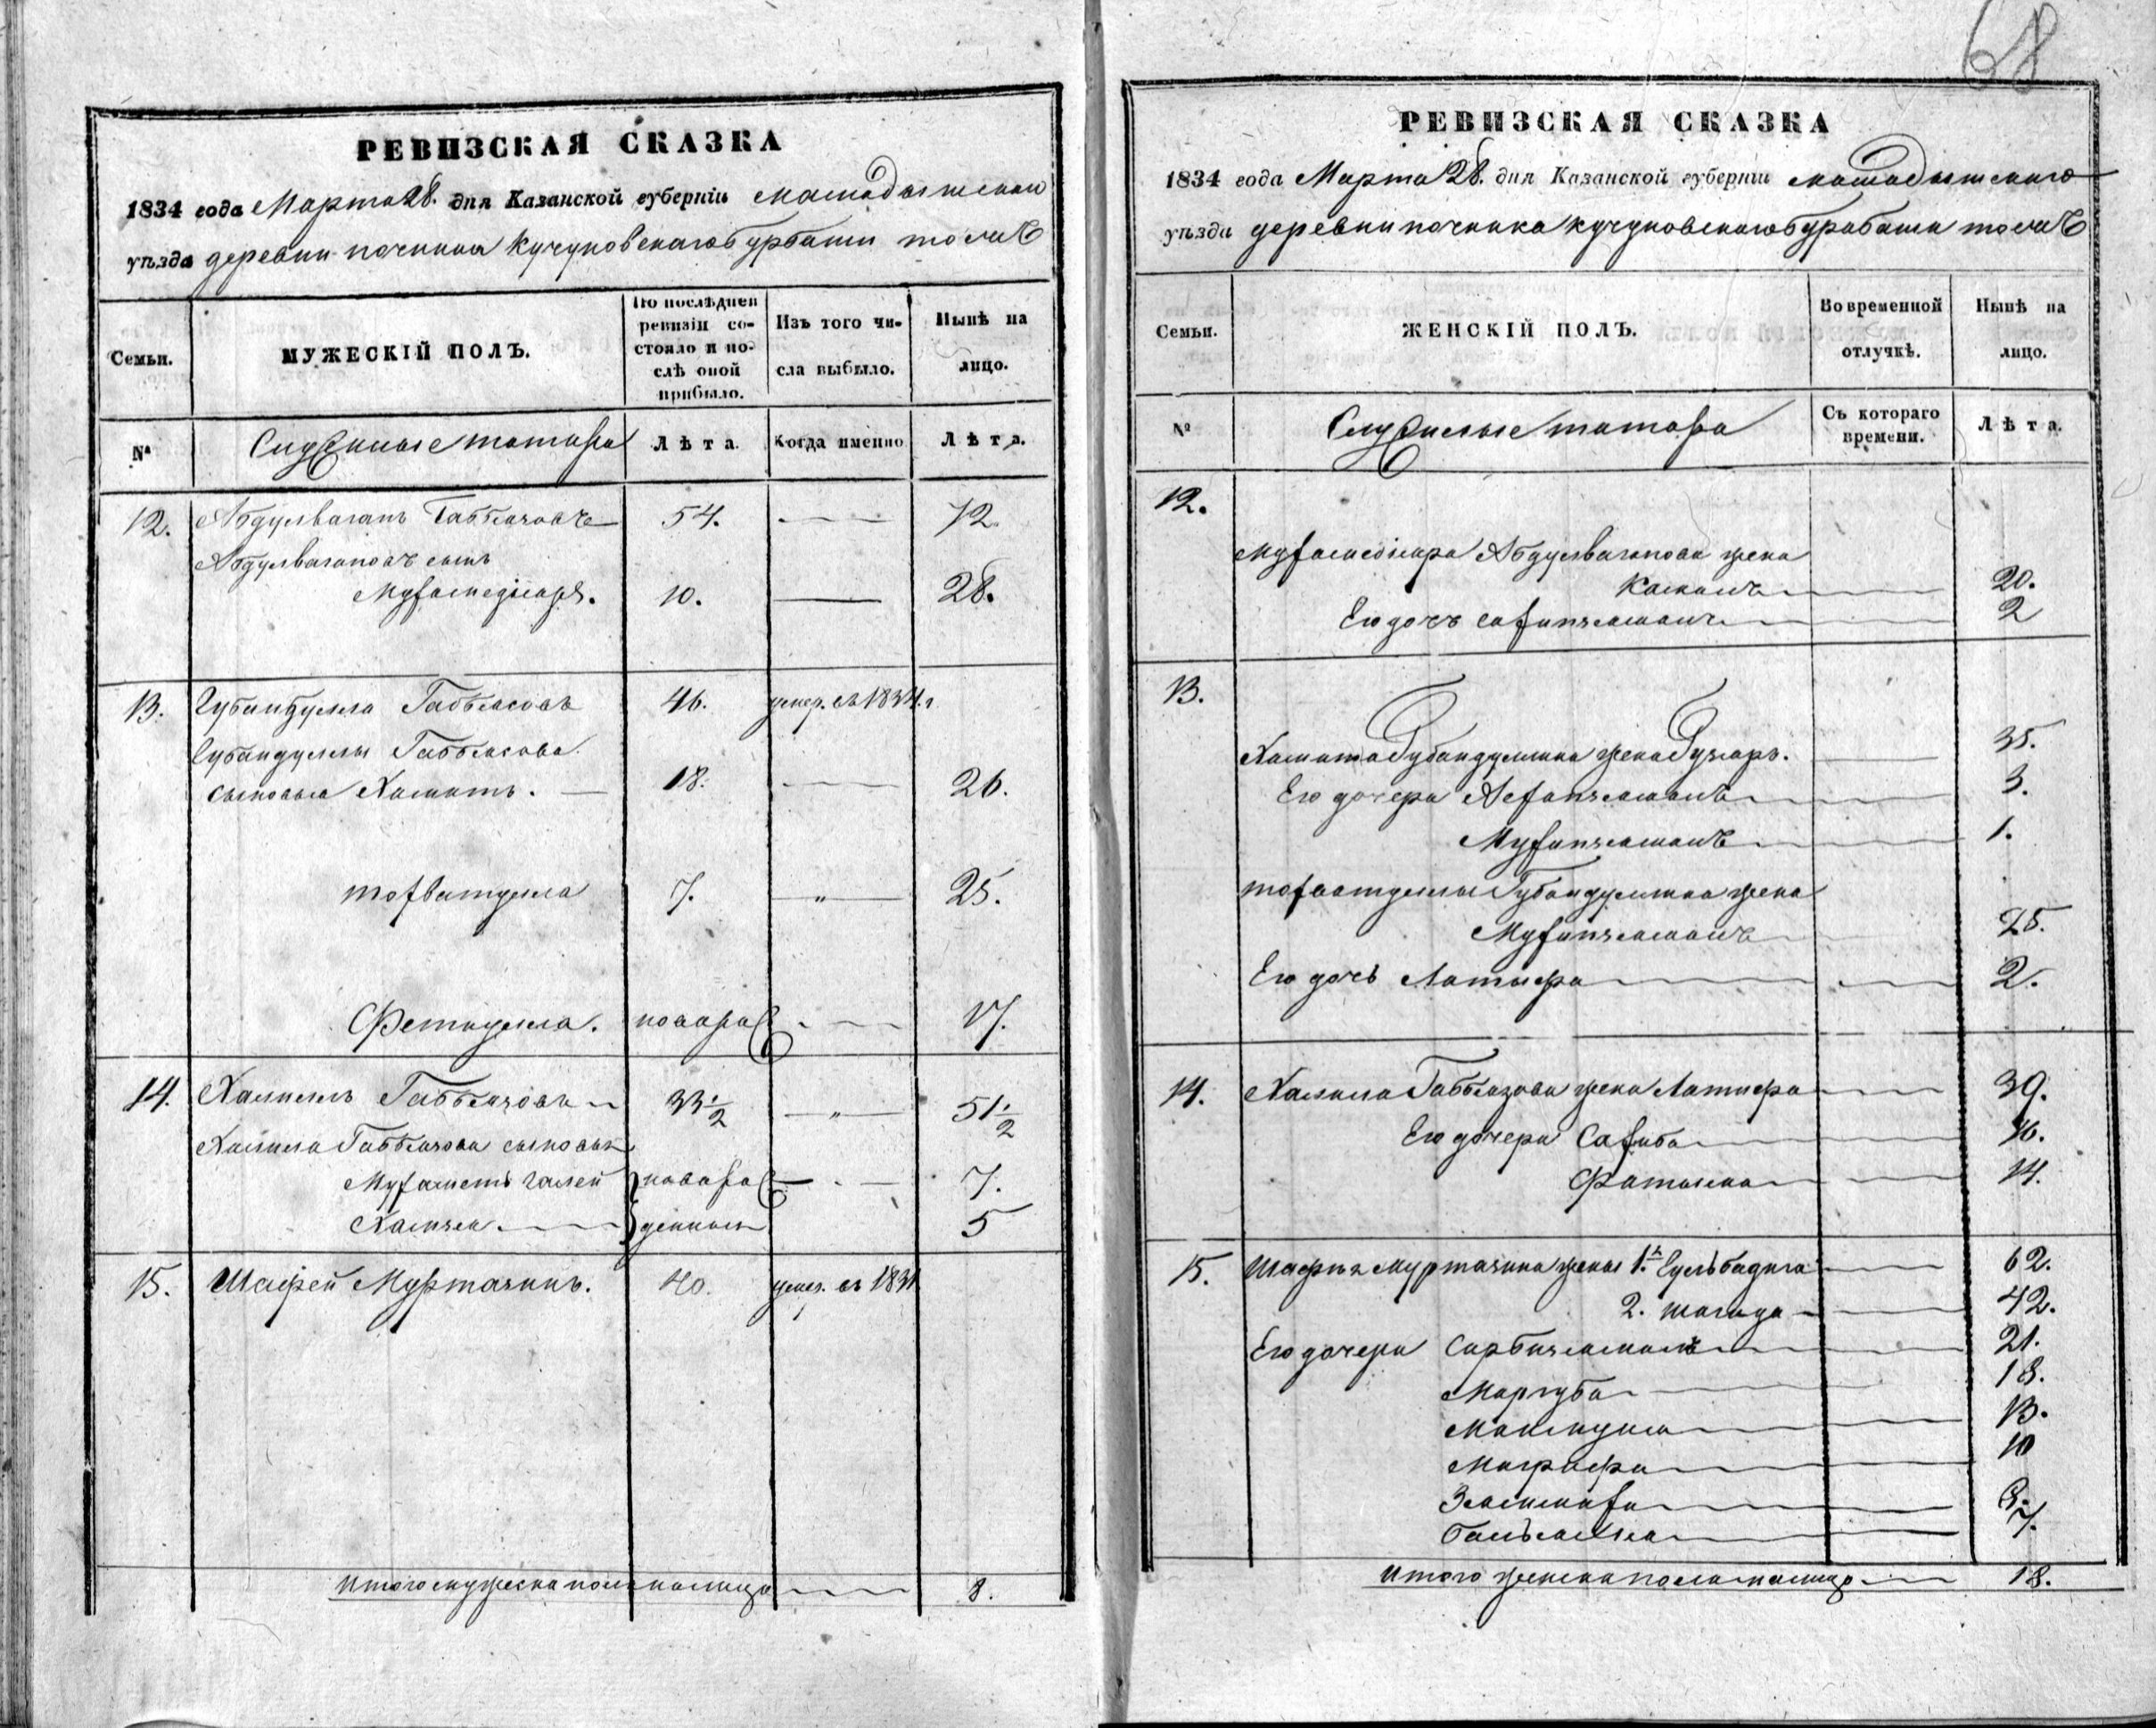 68
РЕВИЗСКАЯ СКАЗКА
1834 года Марта 28. дня Казанской губерніи мамадышскаго
уѣзда деревни починка Кучуковскаго Бурбаши тожъ
Семьи.
МУЖЕСКІЙ ПОЛЪ.
По послѣдней ревизіи со-
стояло и по-
слѣ оной
прибыло.
Изъ того чи-
сла выбыло.
Нынѣ на
лицо.
№
Служилые татара
Лѣта.
Когда именно
Лѣта.
12. Абдулвагапъ Габбазовъ 54. 72.
Абдулвагаповъ сынъ
10. 28.
13. Губайдулла Габбасовъ 46. умер. въ 1834. г
Губайдуллы Габбасова
сыновья Хаматъ. 18. 26.
7. " 25.
Фетиулла. 17.
14. Халилъ Габбазовъ 33 1/2 " 51 1/2
Халила Габбазова сыновья
7.
Хамза 5
15. Шафей Муртазинъ. 40. умер. въ 1831
Итого мужеска пола налицо 8.
РЕВИЗСКАЯ СКАЗКА
1834 года Марта 28. дня Казанской губерніи мамадышскаго
уѣзда деревни починка Кучуковскаго Бурабаши тожъ
Семьи.
ЖЕНСКІЙ ПОЛЪ.
Во временной
отлучкѣ.
Нынѣ на
лицо.
№
Служилые татара
Съ котораго
времени.
Лѣта.
12.
Абдулвагапова жена
20.
Его дочь 2
13.
Хамата Губайдуллина жена Гузгаръ. 35.
Его дочери 3.
1.
Губайдуллина жена
25.
Его дочь Латыфа 2.
14. Халила Габбазова жена Латифа 39.
Его дочери Саfиба 16.
Фатыма 14.
15. Шафея Муртазина жены 1.я Гульбадига 62.
2. Шагида 42.
Его дочери Сарбижамалъ 21.
Маргуба 18.
13.
Магрифа 10
8.
7.
Итого женска пола налицо 18.